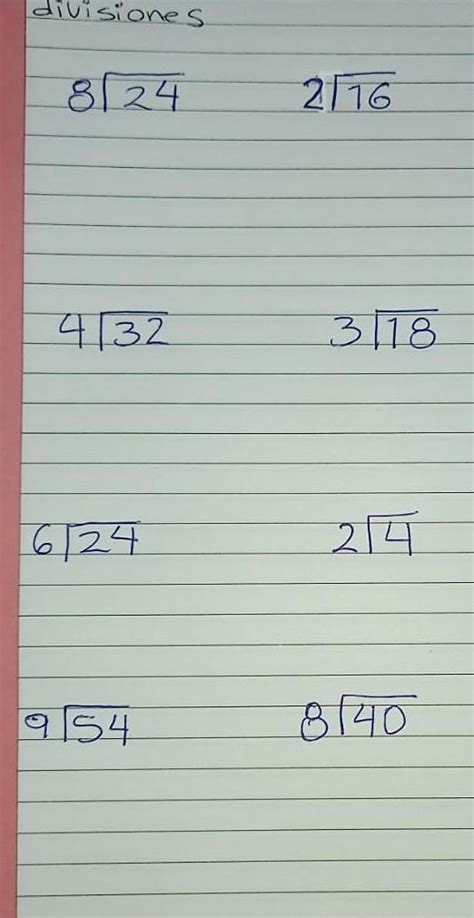 divisiones
8⟌24 2⟌16
4⟌32 3⟌18
6⟌24 2⟌4
9⟌54 8⟌40